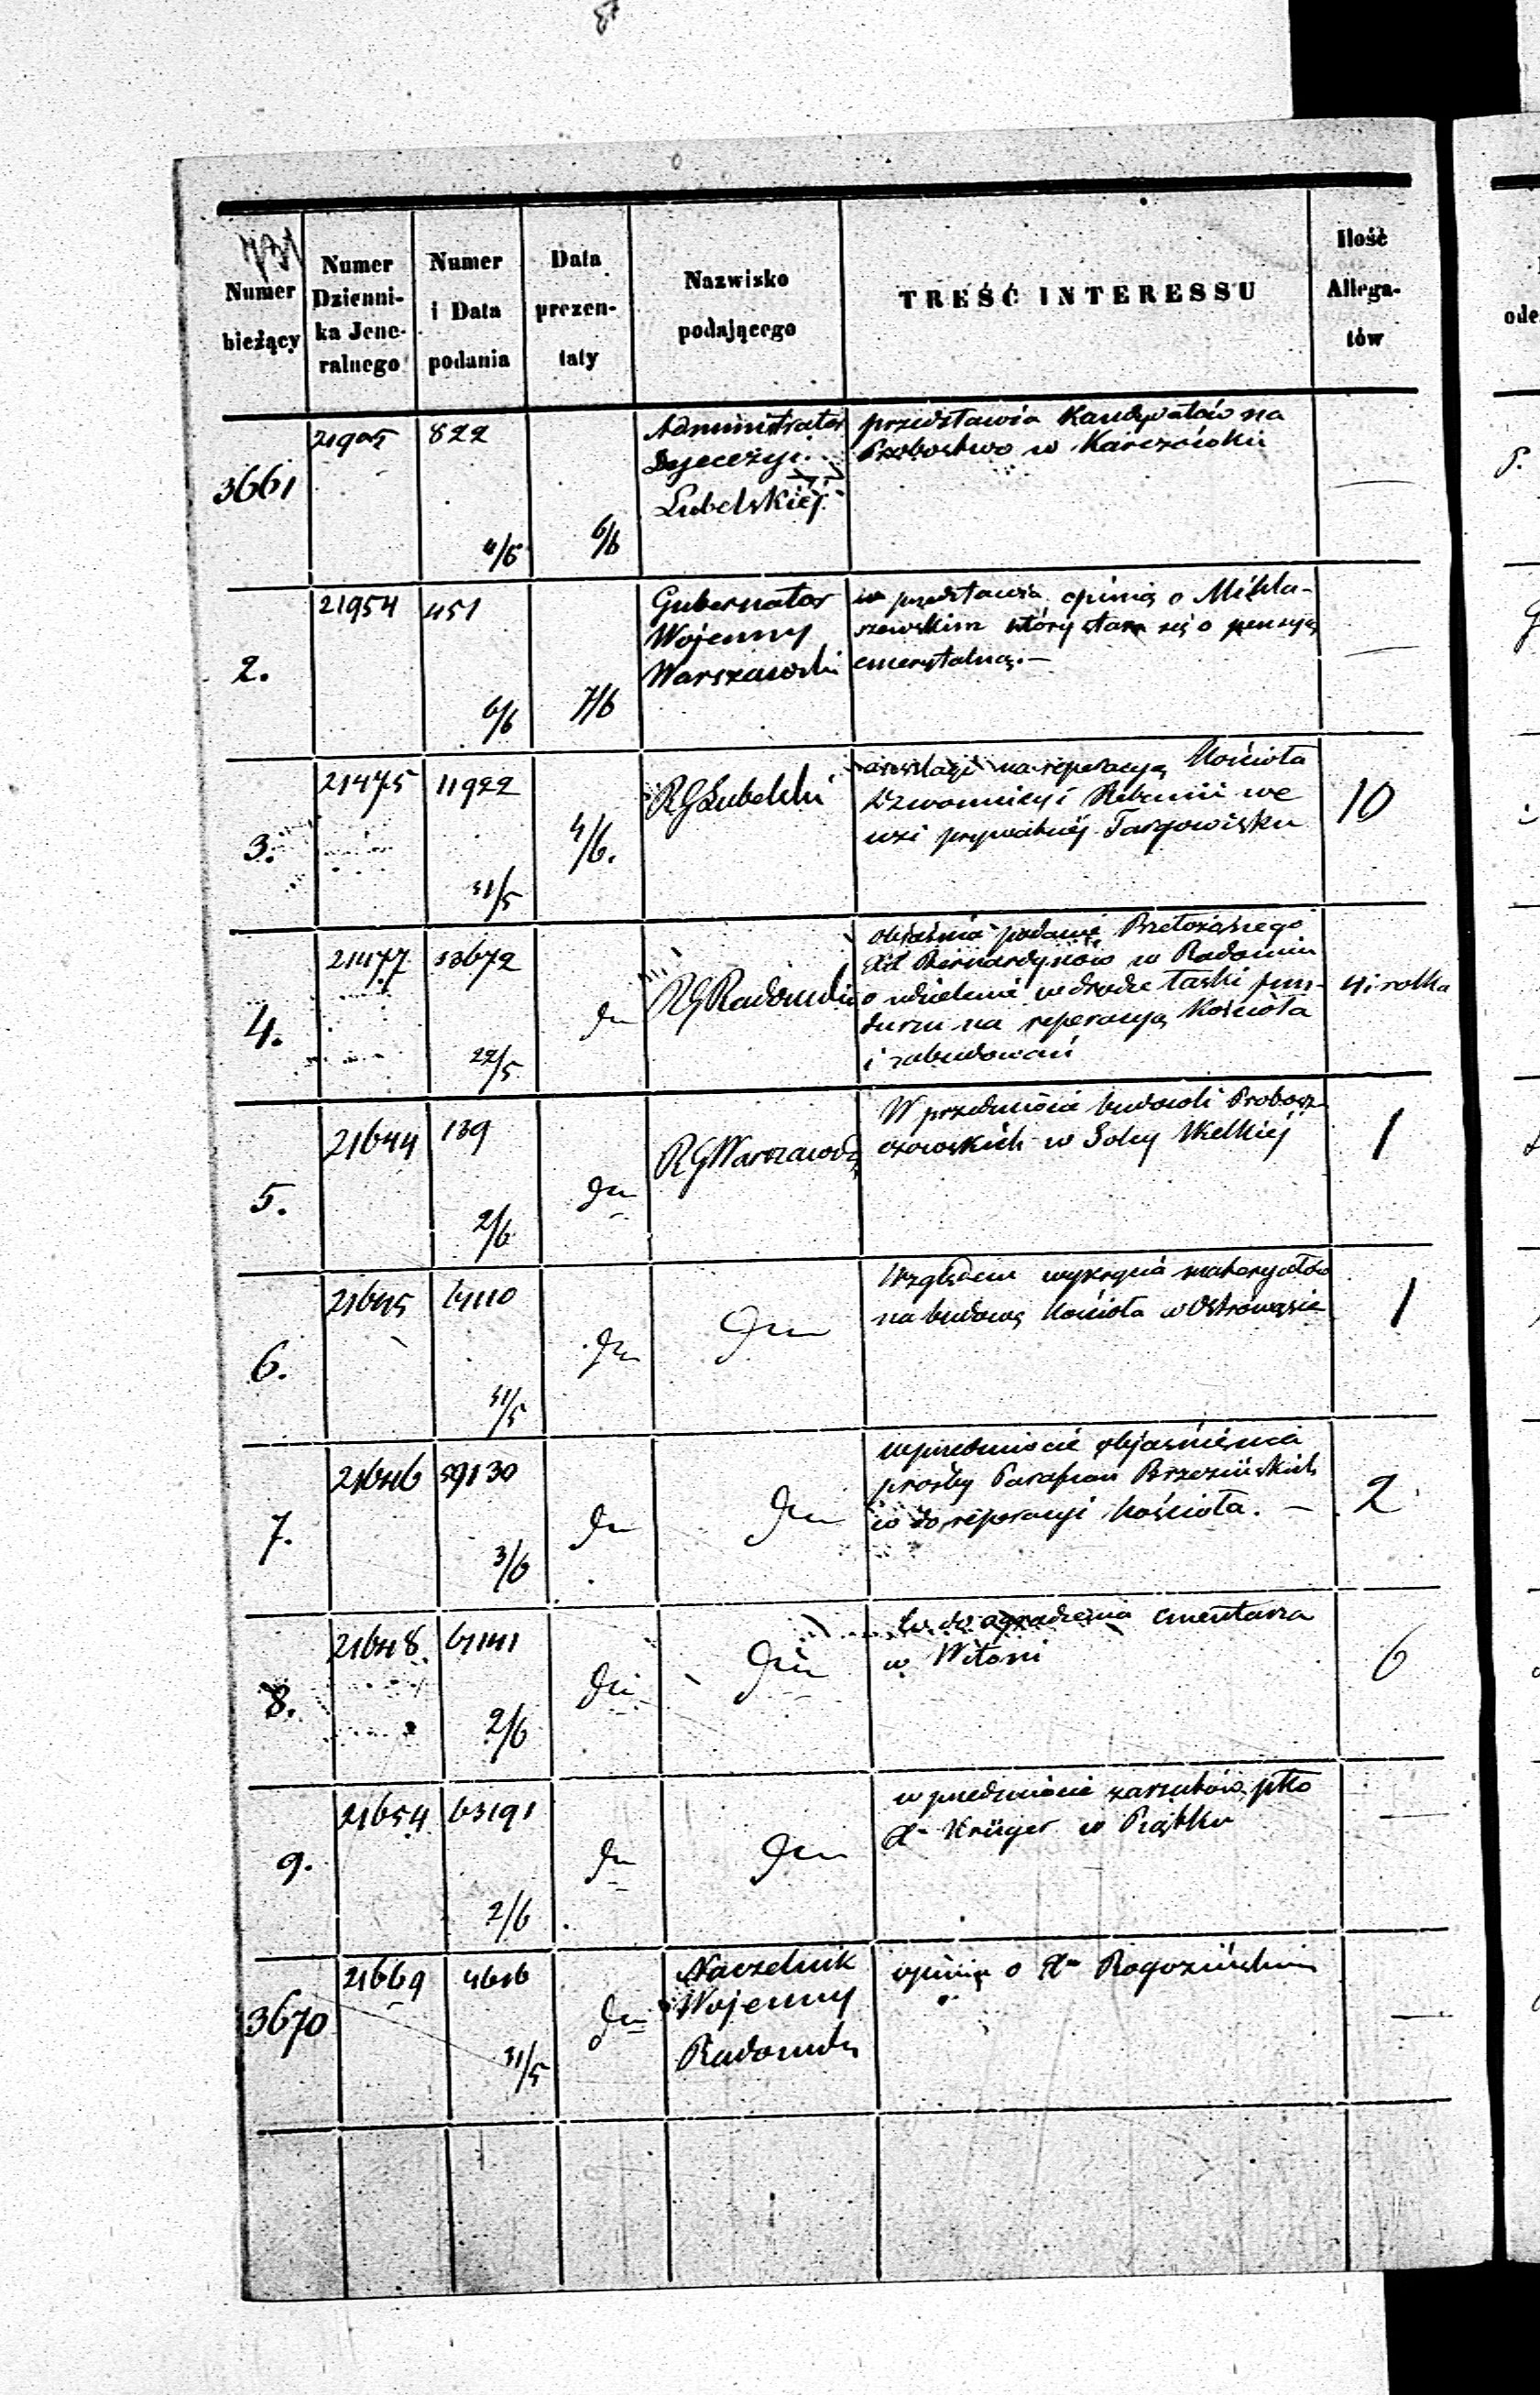 731
Numer bieżący
Numer Dzienni-
ka Jene-
ralnego
Numer i Data podania
Data prezen-
taty
Nazwisko podającego
TREŚĆ INTERESSU
Ilość Allega-
tów
3661
21905
822
4/6
6/6
Administrator
Dyecezyi
Lubelskiej
przedstawia Kandydatów na
Probostwo w
2.
21954
451
6/6
7/6
Gubernator
Wojenny
Warszawski
przedstawia opinią o Mikła-
szewskim który stara się o pensyą
emerytalną.—
3.
21475
11922
31/5
4/6.
RG Lubelski
na reperacyą Kościoła
Dzwonnicy i Plebanii we
wsi prywatnéj Targowisku
10
4.
21477
33672
22/5
dn
RG Radomski
objaśnia podanie Przełożonego
XX Bernardynów w Radomiu
o udzielenie w drodze łaski fun-
duszu na reperacyą Kościoła
i zabudowań
4 i rolka
5.
21644
139
2/6
dn
RG Warszawski
W przedmiocie budowli Probosz-
czowskich w Soley Wielkiéj
1
6.
21645
31/5
dn
dn
Względem materyałów
na budowę Kościoła w Ostrowąsie
1
7.
21646
59130
3/6
dn
dn
w przedmiocie objaśnienia
prośby Parafian Brzezińskich
co do reperacyi Kościoła. —
2
8.
21648
2/6
dn
dn
co do ogrodzenia cmentarza
w Witoni
6
9.
21654
63191
2/6
dn
dn
w przedmiocie zarzutów płko
X Krüger w Piątku
3670
21669
31/5
dn
Naczelnik
Wojenny
Radomski
opinia o X Rogozińskim